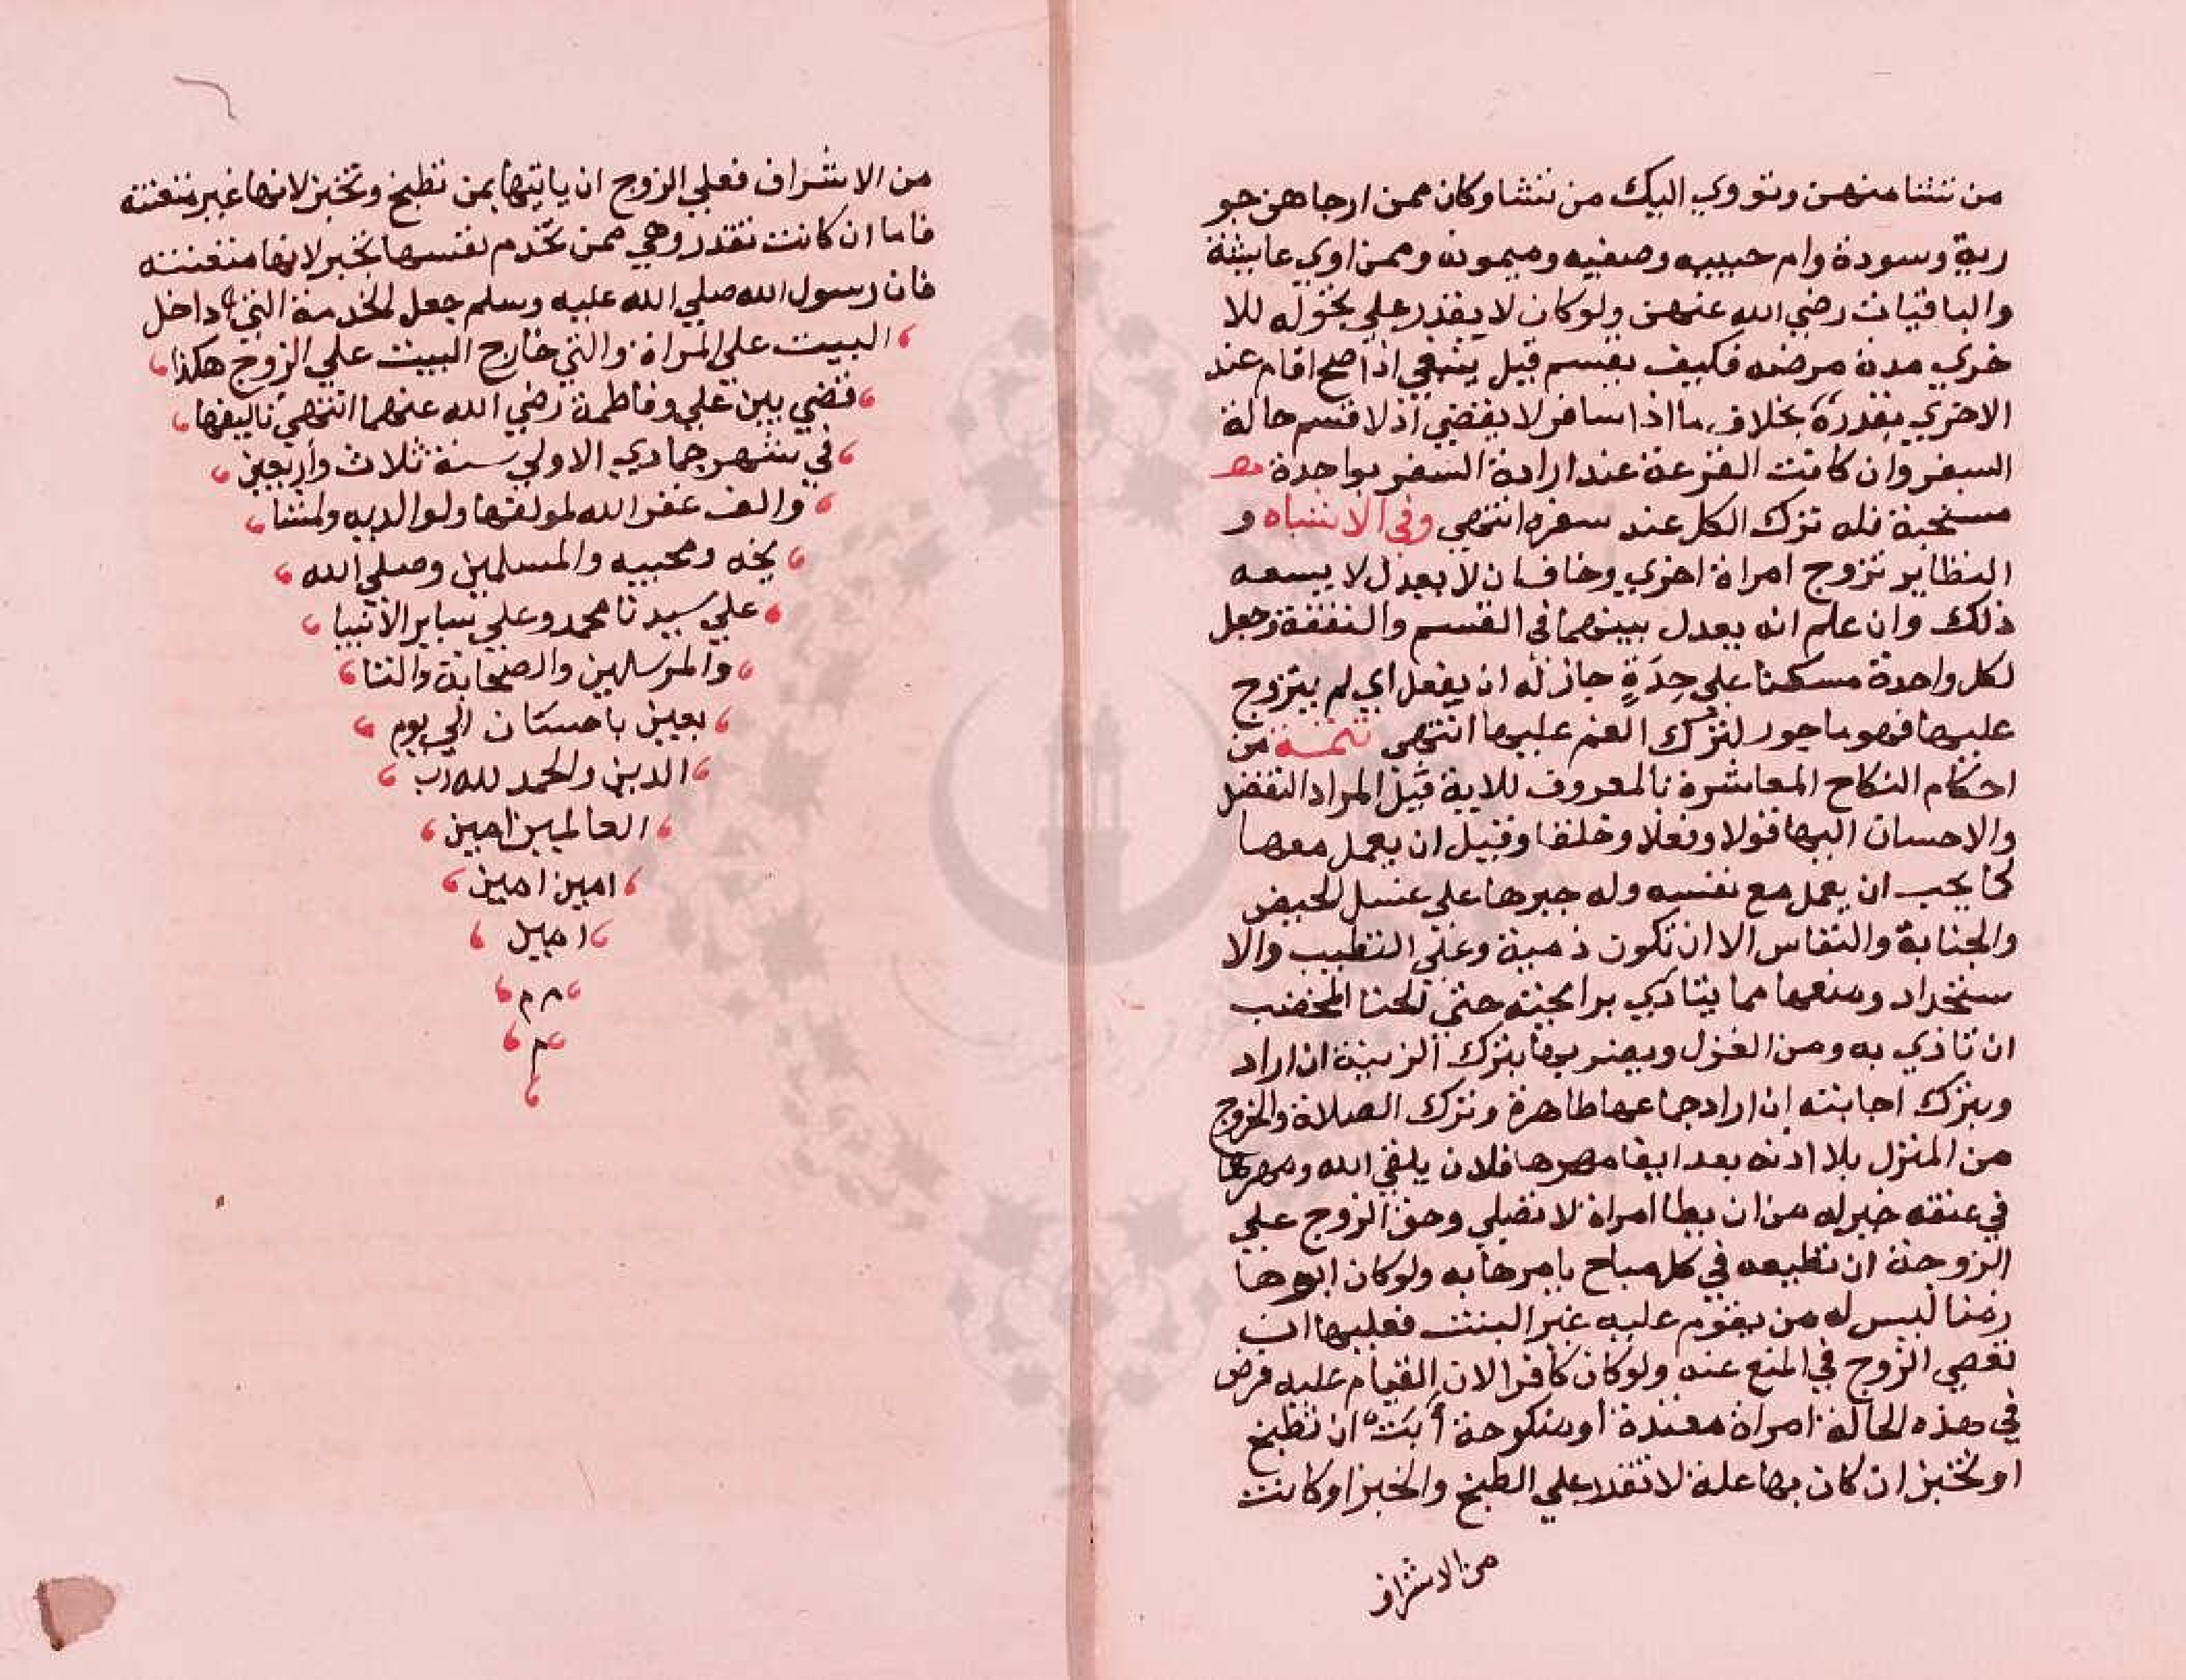 من تشا منهن وتووي اليك من تشا وكان ممن ارجا هن جو
رية وسودة وام حبيبه وصفيه وميمونه وممن اوي عايشة
والباقيات رضي الله عنهن ولو كان لا يقدر علي تحوله للا
خري مدة مرضه فكيف يقسم قيل ينبغي اذا صح اقام عند
الاخري بقدره بخلاف ما اذا سافر لا يقضي اذ لا قسم حالة
السفر وان كانت القرعة عند ارادة السفر بواحدة
مستحبة فله ترك الكل عند سفره انتهي وفي الاشباه و
النظاير تزوج امراة اخري وخاف ان لا يعدل لا يسعه
ذلك وان علم انه يعدل بينهما في القسم والنفقة وجعل
لكل واحدة مسكنا علي حِدَةٍ جاز له ان يفعل اي لم يتزوج
عليها فهو ماجور لترك الغم عليها انتهي تتمة من
احكام النكاح المعاشرة بالمعروف للاية قيل المراد التفضل
والاحسان اليها قولا وفعلا وخلقا وقيل ان يعمل معها
كما يحب ان يعمل مع نفسه وله جبرها علي غسل الحيض
والجنابة والنفاس الا ان تكون ذمية وعلي التطييب والا
ستحداد ومنعها مما يتاذي برايحته حتي الحنا المخضب
ان تاذي به ومن الغزل ويضربها بترك الزينة ان اراد
وبترك اجابته ان اراد جماعها طاهرة وترك الصلاة والخروج
من المنزل بلا اذنه بعد ايفا مهرها فلان يلقي الله ومهرها
في عنقه خير له من ان يطا امراة لا تصلي وحق الزوج علي
الزوجة ان تطيعه في كل مباح يامرها به ولو كان ابوها
زمنا ليس له من يقوم عليه غير البنت فعليها ان
تعصي الزوج في المنع عنه ولو كان كافرا لان القيام عليه فرض
في هذه الحالة امراة معتدة او منكوحة أبَتْ ان تطبخ
او تخبز ان كان بها علة لا تقدر علي الطبخ والخبز او كانت
من الاشراف
من الاشراف فعلي الزوج ان ياتيها بمن تطبخ وتخبز لانها غير متعنتة
فاما ان كانت تقدر وهي ممن تخدم نفسها تجبر لانها متعنته
فان رسول الله صلي الله عليه وسلم جعل الخدمة التي داخل
البيت علي المراة والتي خارج البيت علي الزوج هكذا
قضي بين علي وفاطمة رضي الله عنهما انتهي تاليفها
في شهر جمادي الاولي سنة ثلاث وأربعين
والف غفر الله لمولفها ولوالديه ولمشا
يخه ومحبيه والمسلمين وصلي الله
علي سيدنا محمد وعلي ساير الانبيا
والمرسلين والصحابة والتا
بعين باحسان الي يوم
الدين والحمد لله رب
العالمين امين
امين امين
امين
م م
م